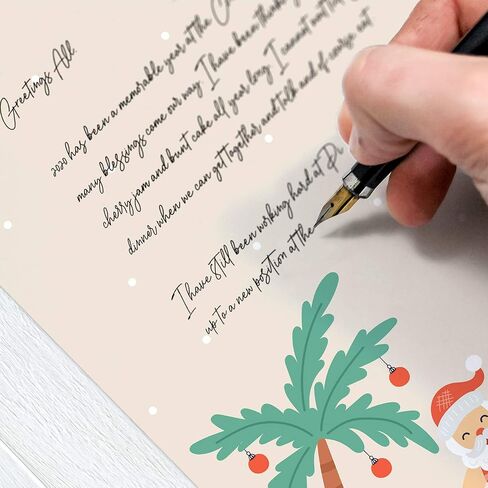 Greetings All,
2020 has been a memorable year at the
many blessings come our way. I have been
cherry jam and bunt cake all year long. I cannot wait
dinner when we can get together and talk and of course eat
I have still been working hard at
up to a new position at the